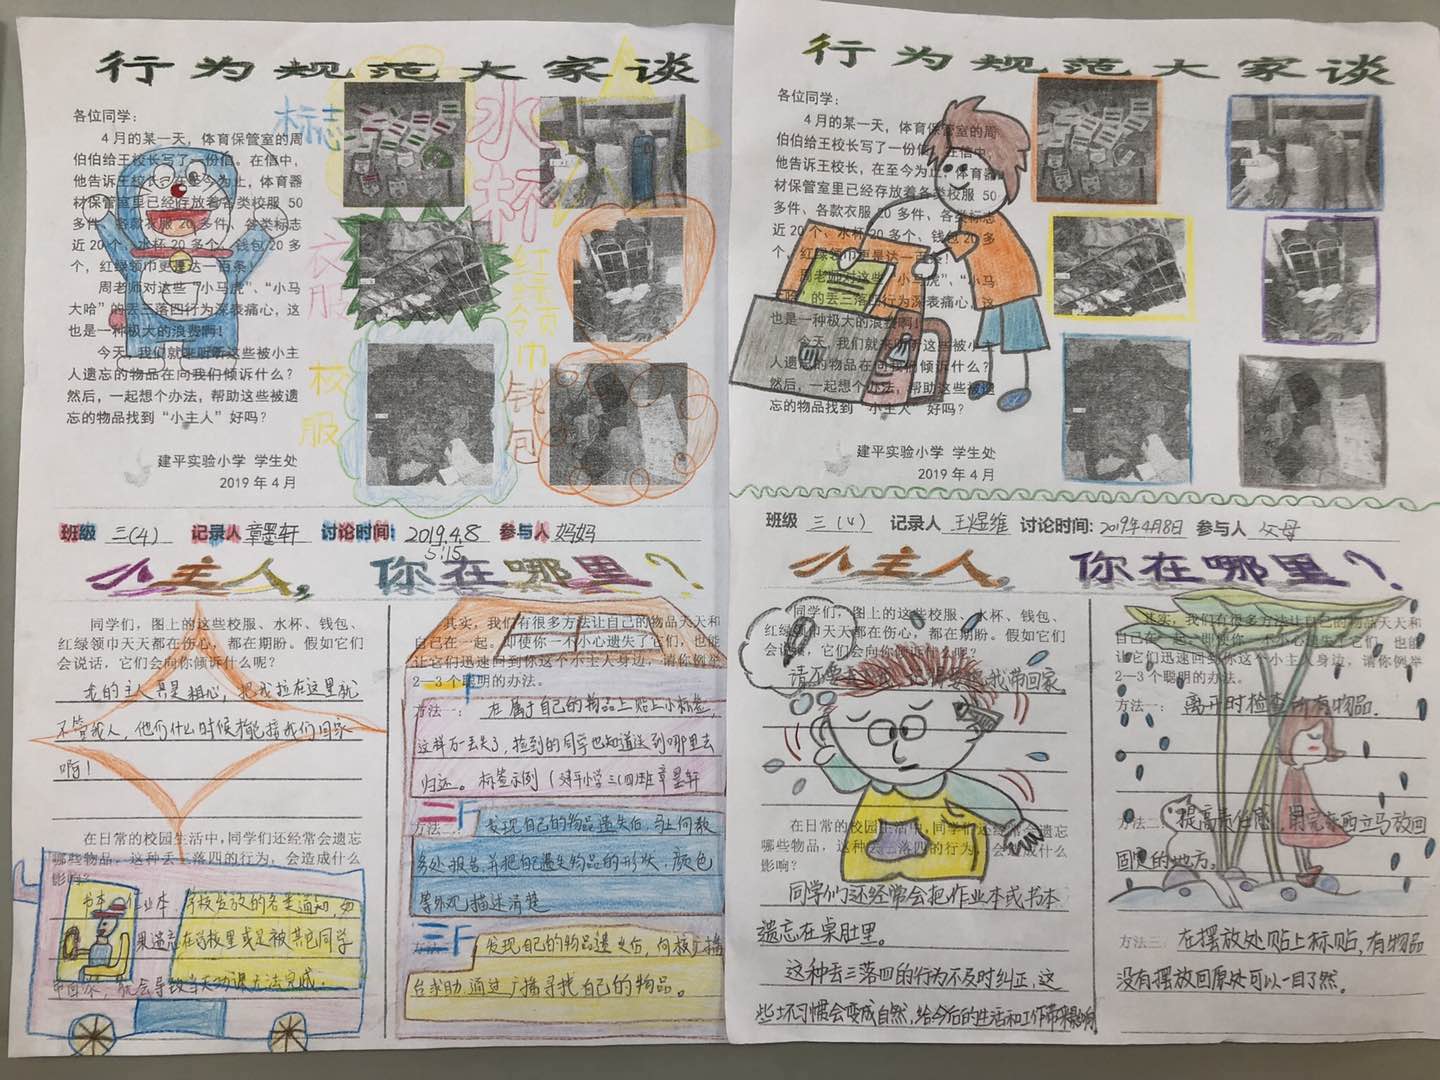 行为规范大家谈
标志
水杯
衣服
红绿领巾
校服
钱包
各位同学：
4月的某一天，体育保管室的周
伯伯给王校长写了一份信。在信中，
他告诉王校长，在至今为止，体育器
材保管室里已经存放着各类校服 50
多件、各款衣服 20 多件、各类标志
近 20 个、水杯 20 多个、钱包 20 多
个，红绿领巾更是达一百条！
周老师对这些“小马虎”、“小马
大哈”的丢三落四行为深表痛心，这
也是一种极大的浪费啊！
今天，我们就来听听这些被小主
人遗忘的物品在向我们倾诉什么？
然后，一起想个办法，帮助这些被遗
忘的物品找到“小主人”好吗？
建平实验小学 学生处
2019 年 4 月
班级 三(4) 记录人 章墨轩 讨论时间：2019.4.8 参与人 妈妈
5:15
小主人，你在哪里？
同学们，图上的这些校服、水杯、钱包、
红绿领巾天天都在伤心，都在期盼。假如它们
会说话，它们会向你倾诉什么呢？
我的主人真是粗心，把我拉在这里就
不管我人，他们什么时候才能接我们回家
啊！
在日常的校园生活中，同学们还经常会遗忘
哪些物品，这种丢三落四的行为，会造成什么
影响？
书本、作业本，学校发放的各类通知，如
果遗忘在学校里或是被其它同学
带回家，就会导致当天功课无法完成.
其实，我们有很多方法让自己的物品天天和
自己在一起。即使你一不小心遗失了它们，也能
让它们迅速回到你这个小主人身边，请你例举
2—3 个聪明的办法。
方法一： 在属于自己的物品上贴上小标签，
这样万一丢失了，捡到的同学也知道送到哪里去
归还。标签示例（建平小学三(四)班章墨轩
方法二： 发现自己的物品遗失后，马上向教
务处报告，并把自己遗失物品的形状、颜色
等外观描述清楚
方法三： 发现自己的物品遗失后，向校广播
台求助，通过广播寻找自己的物品。
行为规范大家谈
各位同学：
4月的某一天，体育保管室的周
伯伯给王校长写了一份信。在信中，
他告诉王校长，在至今为止，体育器
材保管室里已经存放着各类校服 50
多件、各款衣服 20 多件、各类标志
近 20 个、水杯 20 多个、钱包 20 多
个，红绿领巾更是达一百条！
周老师对这些“小马虎”、“小马
大哈”的丢三落四行为深表痛心，这
也是一种极大的浪费啊！
今天，我们就来听听这些被小主
人遗忘的物品在向我们倾诉什么？
然后，一起想个办法，帮助这些被遗
忘的物品找到“小主人”好吗？
建平实验小学 学生处
2019 年 4 月
班级 三(4) 记录人 王煜维 讨论时间：2019年4月8日 参与人 父母
小主人，你在哪里？
同学们，图上的这些校服、水杯、钱包、
红绿领巾天天都在伤心，都在期盼。假如它们
会说话，它们会向你倾诉什么呢？
请不要 我带回家
在日常的校园生活中，同学们还经常会遗忘
哪些物品，这种丢三落四的行为，会造成什么
影响？
同学们还经常会把作业本或书本
遗忘在桌肚里。
这种丢三落四的行为不及时纠正，这
些坏习惯会变成自然，给今后的生活和工作带来影响
其实，我们有很多方法让自己的物品天天和
自己在一起。即使你一不小心遗失了它们，也能
让它们迅速回到你这个小主人身边，请你例举
2—3 个聪明的办法。
方法一： 离开时检查所有物品.
方法二： 提高责任感，用完东西立马放回
固定的地方。
方法三： 在摆放处贴上标贴，有物品
没有摆放回原处可以一目了然。